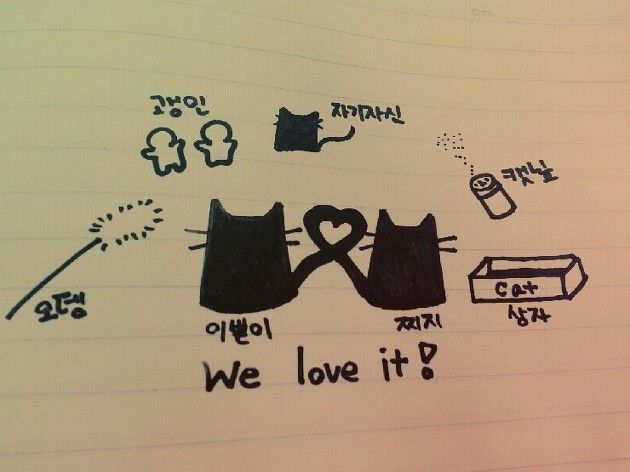 고갱인
자기자신
캣닢
오뎅
cat
상자
이쁜이
찌지
We love it!